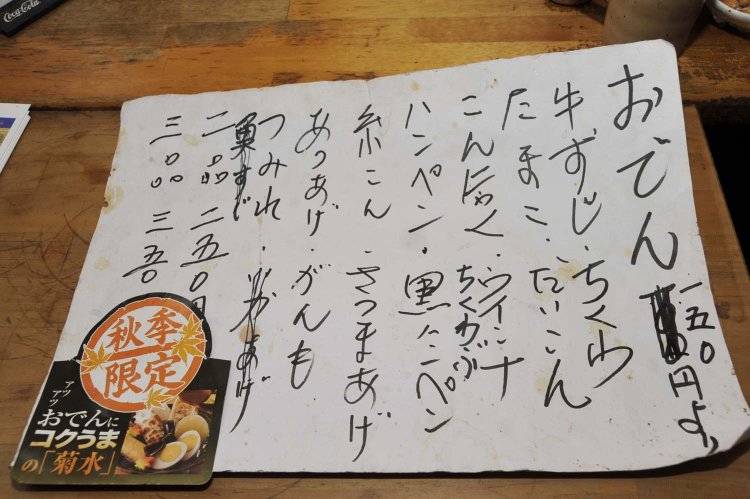 おでん 一五〇円より
牛すじ・ちくわ
たまご・だいこん
こんにゃく・ウインナー
ちくわぶ
ハンペン・黒ハンペン
糸こん・さつまあげ
あつあげ・がんも
つみれ・
魚すじ
二品 二五〇円
三品 三五〇
秋季
限定
アツ
アツ
おでんに
コクうま
の「菊水」
Coca-Cola